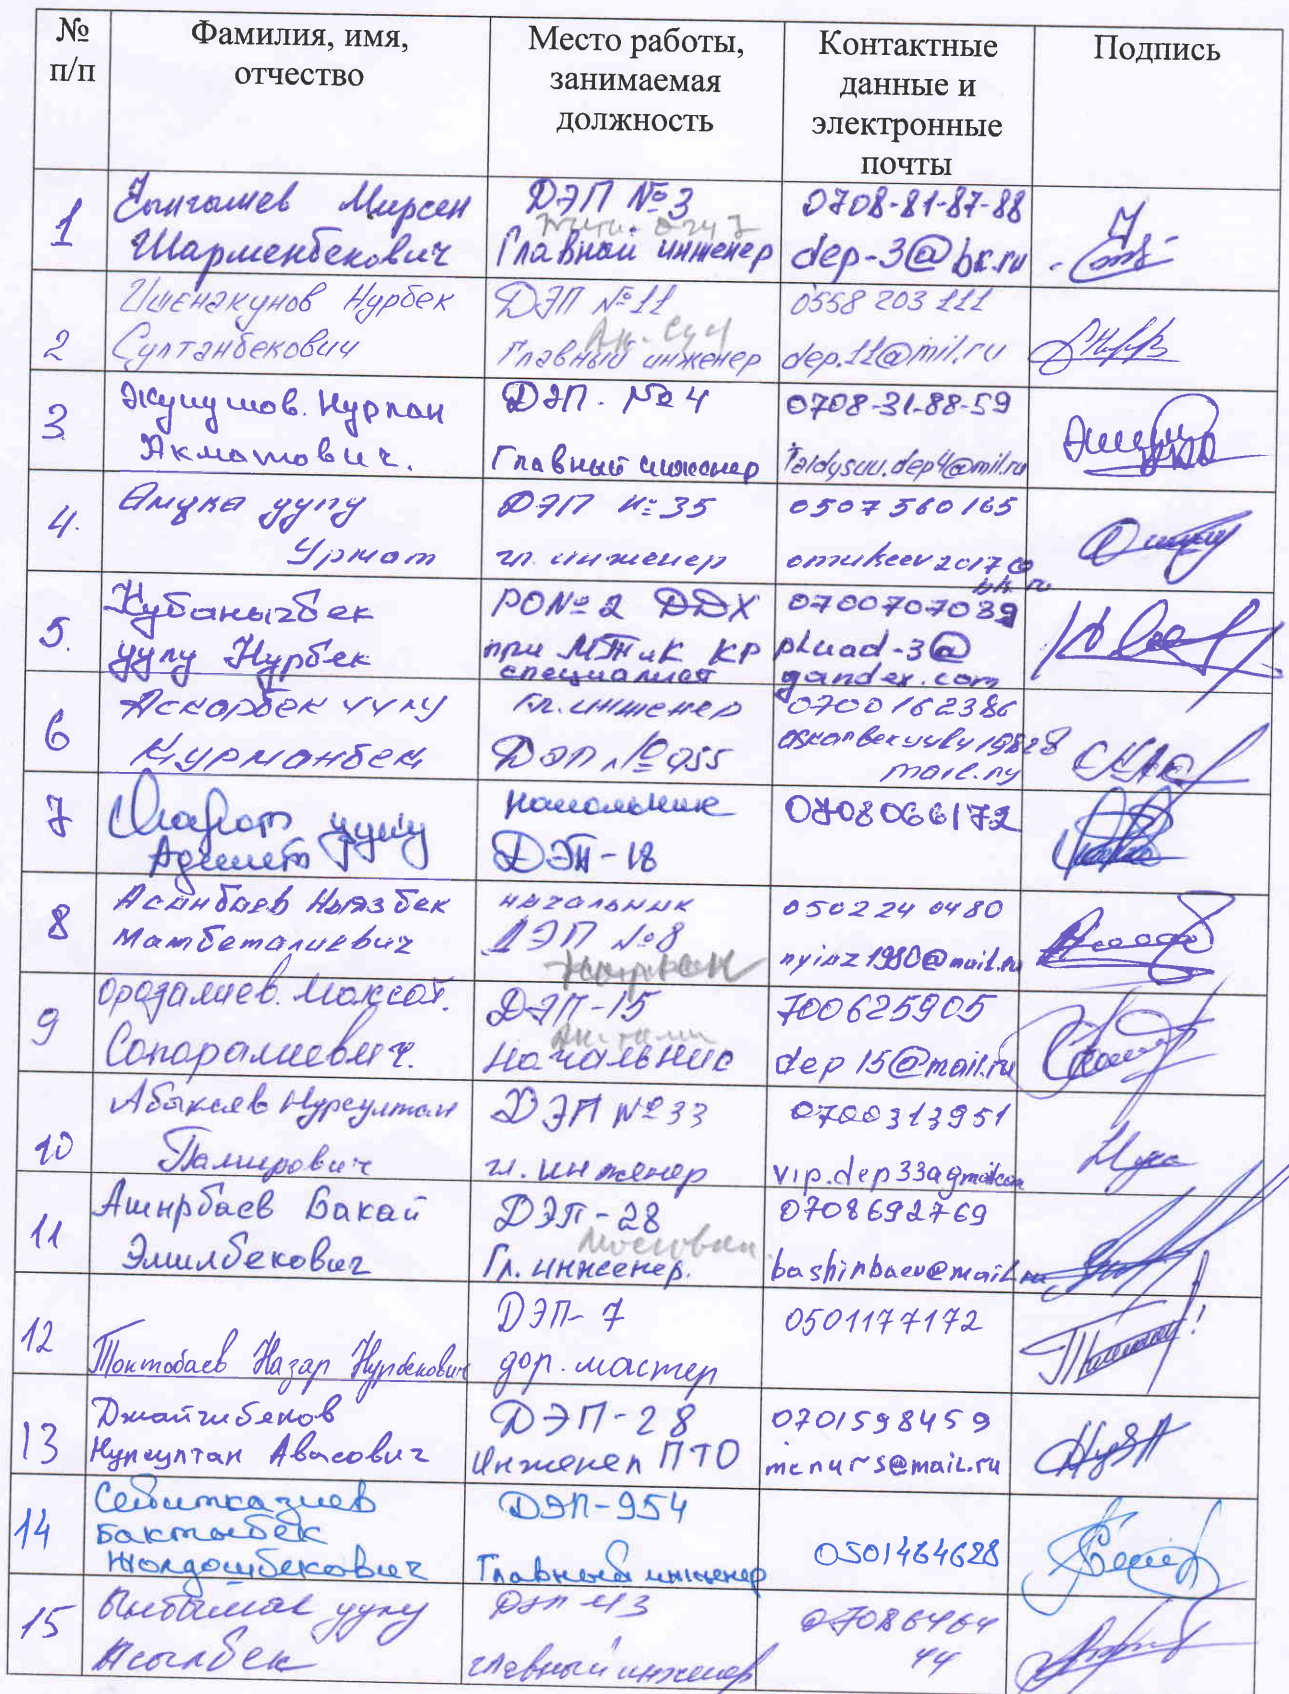 № п/п
Фамилия, имя, отчество
Место работы, занимаемая должность
Контактные данные и электронные почты
Подпись
1
Мирсен
Шарменбекович
ДЭП №3
Главный инженер
0708-81-87-88
dep-3@bk.ru
2
Ишенакунов Нурбек
Султанбекович
ДЭП №11
Ак-Суу
Главный инженер
0558 203 111
dep.11@mil.ru
3
Жунушов. Нурлан
Акматович.
ДЭП. №4
Главный инженер
0708-31-88-59
Taldysuu.dep4@mil.ru
4.
Омука уулу
Урмат
ДЭП №35
гл. инженер
0507 560 165
omukeev2017@
bk.ru
5.
Кубанычбек
уулу Нурбек
РО№2 ДДХ
при МТиК КР
специалист
0700707039
pluad-3@
yandex.com
6
Аскарбек уулу
Курманбек
Гл. инженер
ДЭП №955
0700162386
7
уулу
Адилет
начальник
ДЭП-18
0708066172
8
Асанбаев Ныязбек
Матбеталиевич
начальник
ДЭП №8
0502240480
nyiaz1980@mail.ru
9
Орозалиев. Максат.
Сапаралиевич.
ДЭП-15
начальник
700625905
dep15@mail.ru
10
Абакаев Нурсултан
Памирович
ДЭП №33
гл. инженер
0700313951
vip.dep33@gmail.com
11
Аширбаев Бакай
Эмилбекович
ДЭП-28
Гл. инженер.
0708692769
bashirbaev@mail.ru
12
Токтобаев Назар Нурбекович
ДЭП-7
дор. мастер
0501177172
13
Джайчибеков
Нурсултан Авасович
ДЭП-28
Инженер ПТО
0701598459
mcnurs@mail.ru
14
Сейитказиев
Бактыбек
Жолдошбекович
ДЭП-954
Главный инженер
0501464628
15
уулу
Асылбек
ДЭП 43
главный инженер
07086464
44